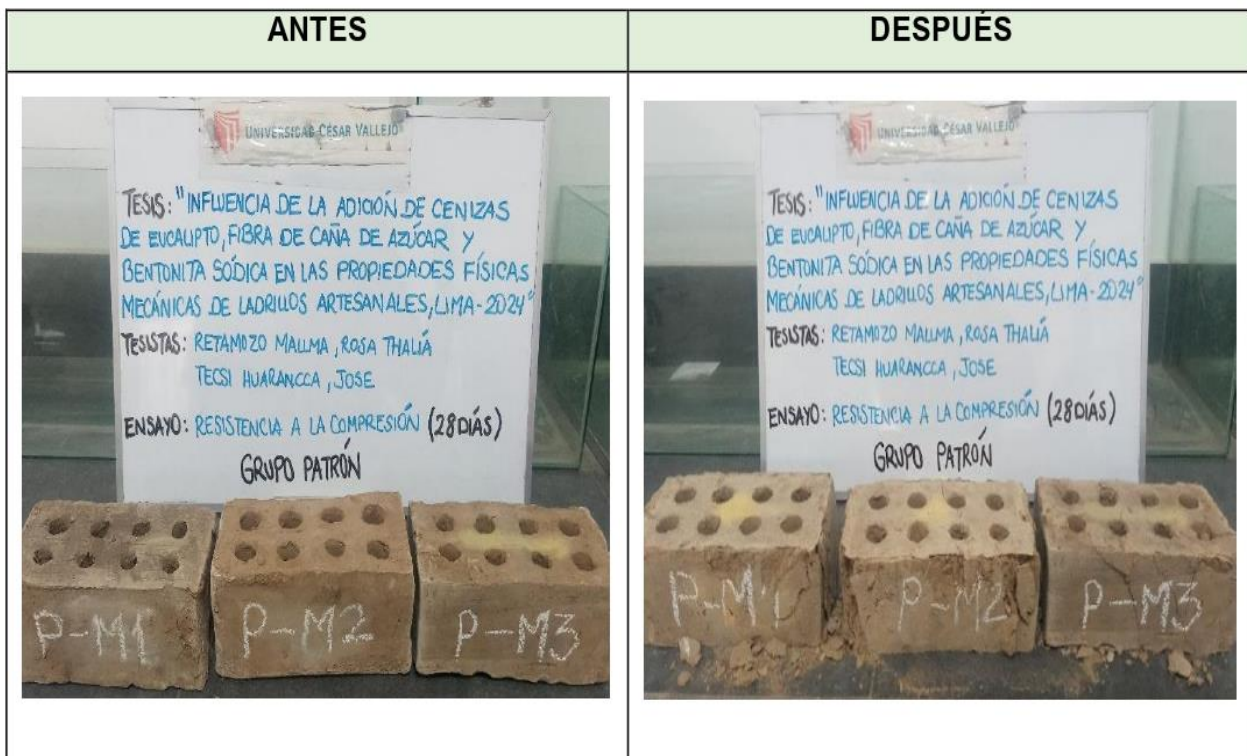 ANTES
DESPUÉS
UNIVERSIDAD CÉSAR VALLEJO
TESIS: "INFLUENCIA DE LA ADICIÓN DE CENIZAS
DE EUCALIPTO, FIBRA DE CAÑA DE AZÚCAR Y
BENTONITA SÓDICA EN LAS PROPIEDADES FÍSICAS
MECÁNICAS DE LADRILLOS ARTESANALES, LIMA-2024"
TESISTAS: RETAMOZO MALLMA, ROSA THALIÁ
TECSI HUARANCCA, JOSE
ENSAYO: RESISTENCIA A LA COMPRESIÓN (28DIÁS)
GRUPO PATRÓN
P-M1
P-M2
P-M3
UNIVERSIDAD CÉSAR VALLEJO
TESIS: "INFLUENCIA DE LA ADICIÓN DE CENIZAS
DE EUCALIPTO, FIBRA DE CAÑA DE AZÚCAR Y
BENTONITA SÓDICA EN LAS PROPIEDADES FÍSICAS
MECÁNICAS DE LADRILLOS ARTESANALES, LIMA-2024"
TESISTAS: RETAMOZO MALLMA, ROSA THALIÁ
TECSI HUARANCCA, JOSE
ENSAYO: RESISTENCIA A LA COMPRESIÓN (28DIÁS)
GRUPO PATRÓN
P-M1
P-M2
P-M3